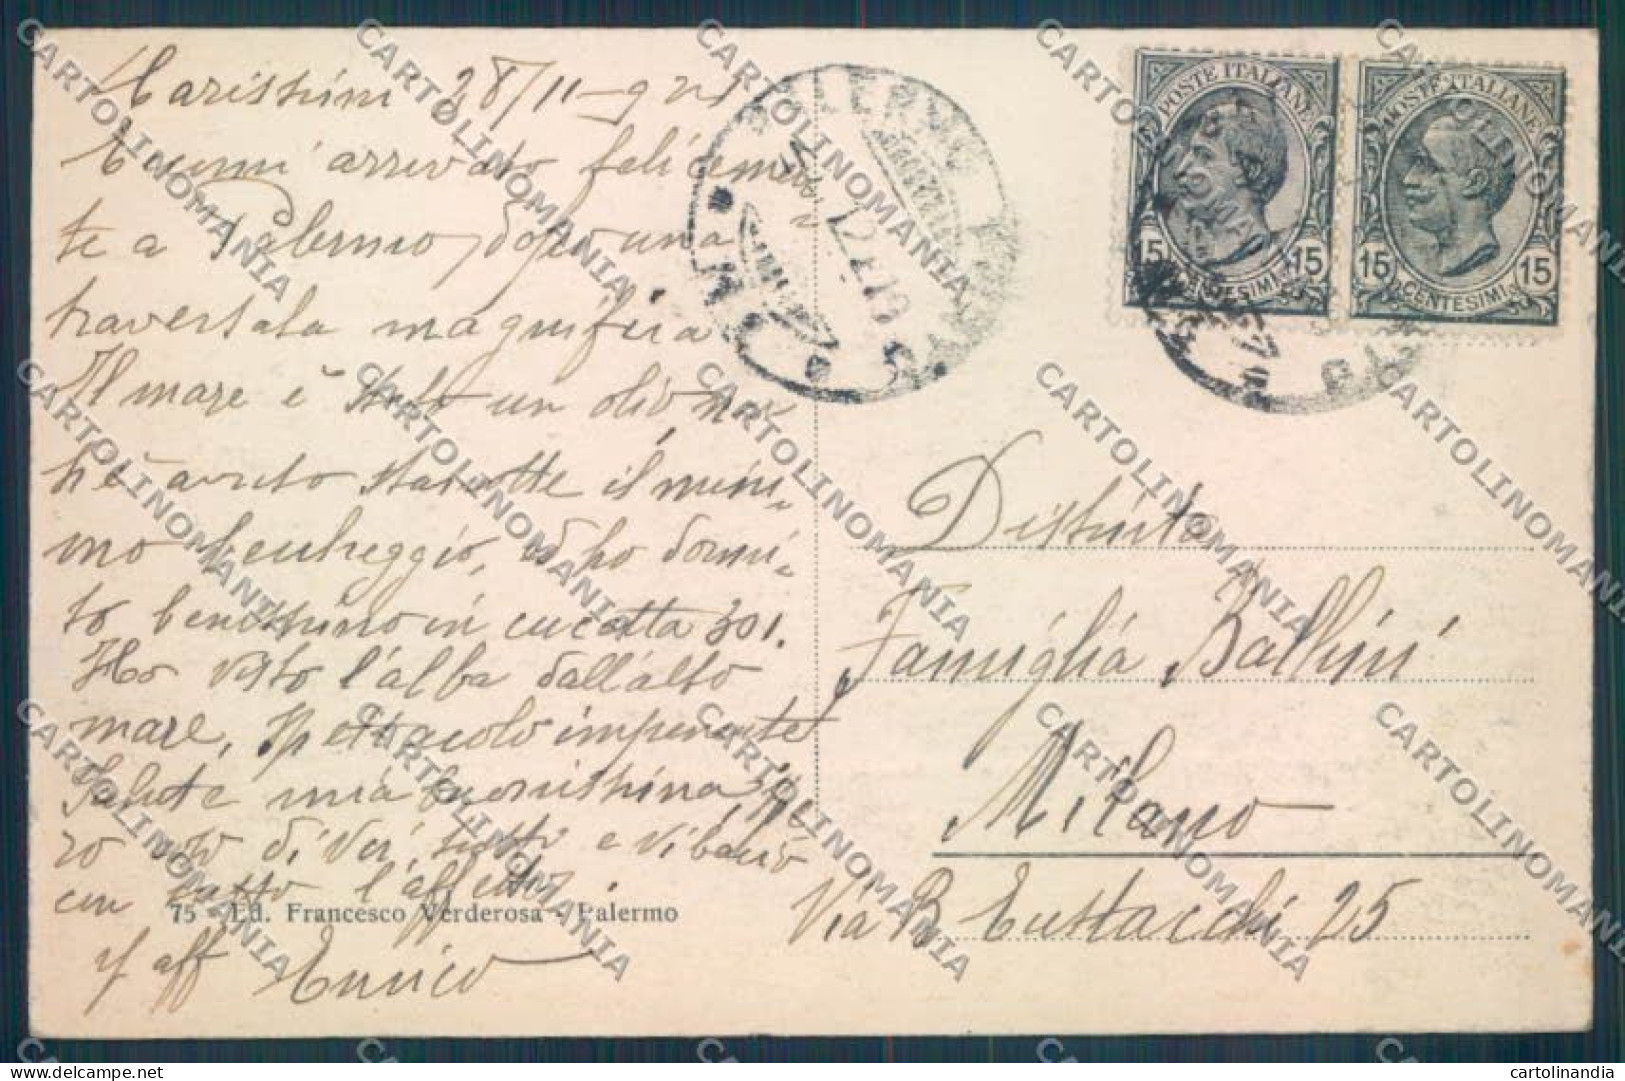 Carissimi 28/11-921
Eccomi arrivato felicemen
te a Palermo dopo una
traversata magnifica
Il mare è stato un olio
h è avuto stanotte il mini-
mo beccheggio, ed ho dormi-
to benissimo in cuccetta 301.
Ho visto l'alba dall'alto
mare, spettacolo imponente
Salute mia buonissima, spe
ro così di Voi tutti e Vi bacio
con tutto l'affetto.
aff Enrico
75 - Ed. Francesco Verderosa - Palermo
PALERMO
POSTE ITALIANE
15 15
CENTESIMI
POSTE ITALIANE
15 15
CENTESIMI
Distinta
Famiglia Ballini
Milano
Via B Eustacchi 25
CARTOLINOMANIA
cartolinandia